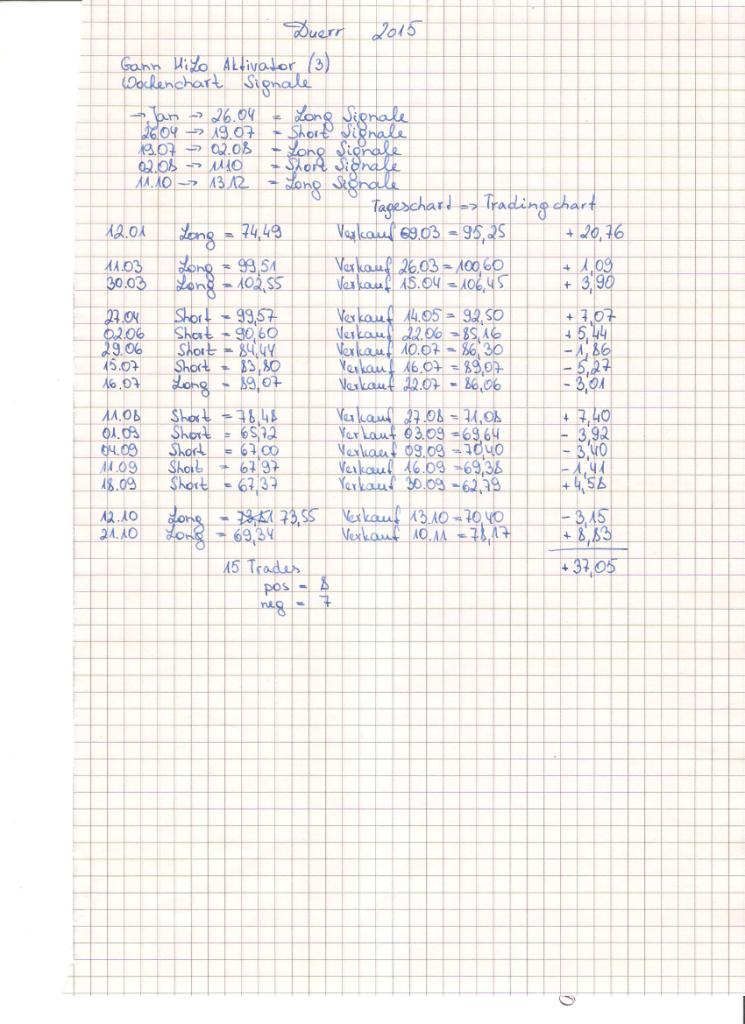 Duerr 2015
Gann HiLo Aktivator (3)
Wochenchart Signale
→ Jan → 26.04 = Long Signale
26.04 → 19.07 = Short Signale
19.07 → 02.08 = Long Signale
02.08 → 11.10 = Short Signale
11.10 → 13.12 = Long Signale
Tageschart => Tradingchart
12.01 Long = 74,49 Verkauf 09.03 = 95,25 + 20,76
11.03 Long = 99,51 Verkauf 26.03 = 100,60 + 1,09
30.03 Long = 102,55 Verkauf 15.04 = 106,45 + 3,90
27.04 Short = 99,57 Verkauf 14.05 = 92,50 + 7,07
02.06 Short = 90,60 Verkauf 22.06 = 85,16 + 5,44
29.06 Short = 84,44 Verkauf 10.07 = 86,30 - 1,86
15.07 Short = 83,80 Verkauf 16.07 = 89,07 - 5,27
16.07 Long = 89,07 Verkauf 22.07 = 86,06 - 3,01
11.08 Short = 78,48 Verkauf 27.08 = 71,08 + 7,40
01.09 Short = 65,72 Verkauf 03.09 = 69,64 - 3,92
04.09 Short = 67,00 Verkauf 09.09 = 70,40 - 3,40
11.09 Short = 67,97 Verkauf 16.09 = 69,38 - 1,41
18.09 Short = 67,37 Verkauf 30.09 = 62,79 + 4,58
12.10 Long = 73,55 Verkauf 13.10 = 70,40 - 3,15
21.10 Long = 69,34 Verkauf 10.11 = 78,17 + 8,83
15 Trades + 37,05
pos = 8
neg = 7